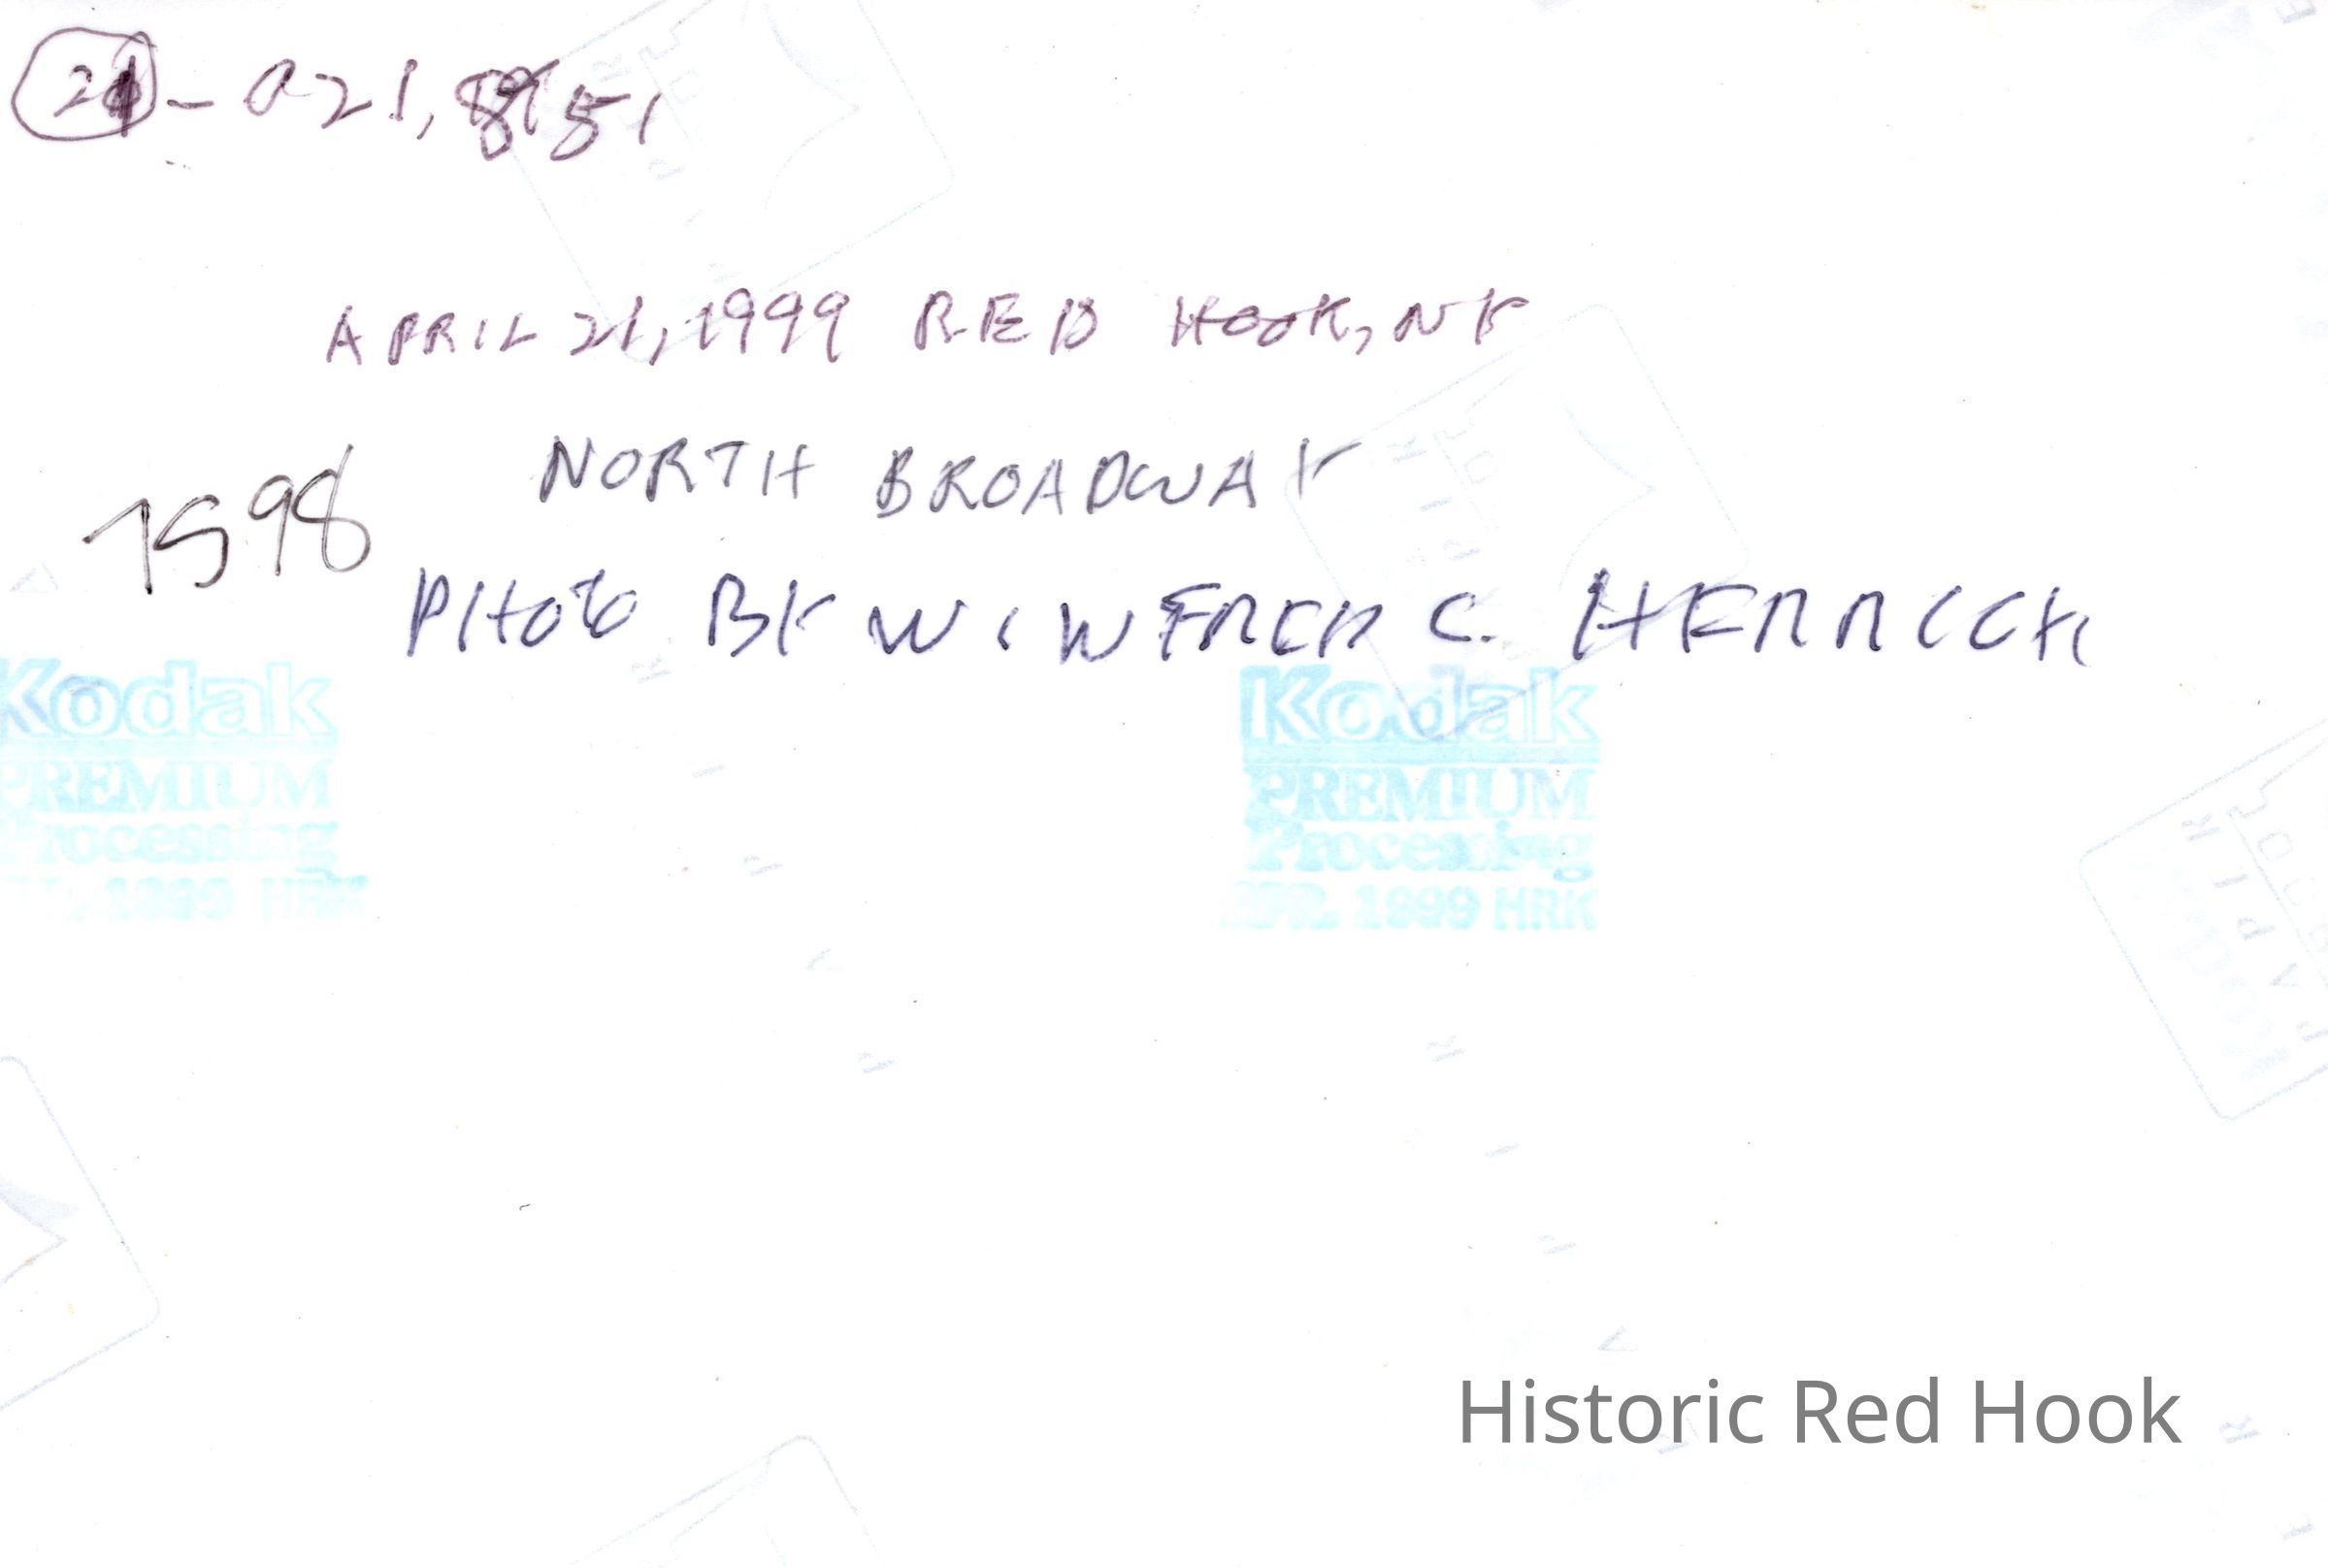 21 - 021,
APRIL 21, 1999 RED HOOK, NY
NORTH BROADWAY
7598
PHOTO BY WINIFRED C. HERRICK
Kodak
PREMIUM
Processing
1999 HRK
Kodak
PREMIUM
Processing
APR. 1999 HRK
Historic Red Hook